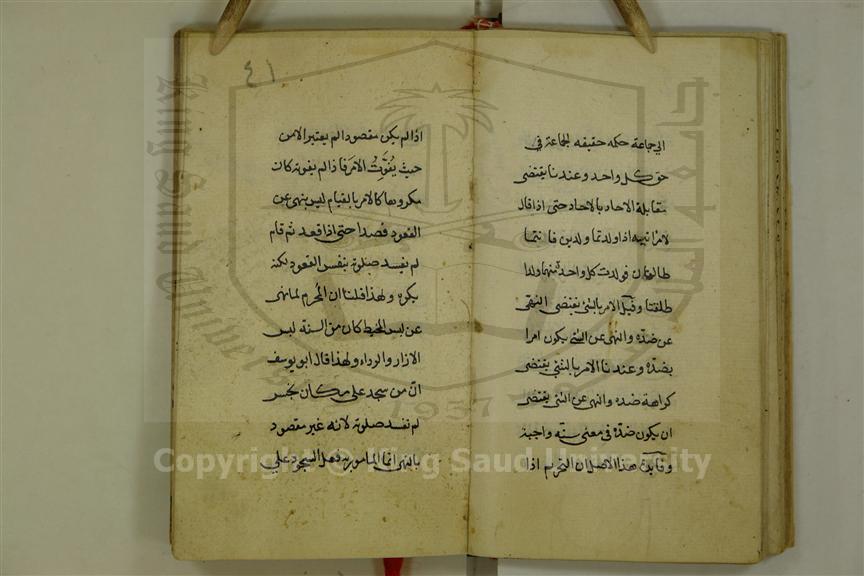 الى جماعة حكمه حقيقه الجماعة فى
حق كل واحد وعندنا يقتضى
مقابلة الاحاد بالاحاد حتى اذا قال
لامراتيه اذا ولدتما ولدين فانتما
طالقتان فولدت كل واحدة منهما ولدا
طلقتا وقيل الامر بالشئ يقتضى النهى
عن ضده والنهى عن الشئ يكون امرا
بضده وعندنا الامر بالشئ يقتضى
كراهة ضده والنهى عن الشئ يقتضى
ان يكون ضده فى معنى سنة واجبة
وفايدة هذا الاصل ان التحريم اذا
٤١
اذا لم يكن مقصودا لم يعتبر الا من
حيث يُفَوِّتُ الامر فاذا لم يفوته كان
مكروها كالامر بالقيام ليس بنهى عن
القعود قصدا حتى اذا قعد ثم قام
لم يفسد صلوته بنفس القعود لكنه
يكره ولهذا قلنا ان المُحرم لما نهى
عن لبس المخيط كان من السنة لبس
الازار والرداء ولهذا قال ابو يوسف
انّ من سجد على مكان نجس
لم تفسد صلوته لانه غير مقصود
بالنهى انما المامور به فعل السجود على
جامعة الملك سعود
King Saud University
1957
Copyright © King Saud University